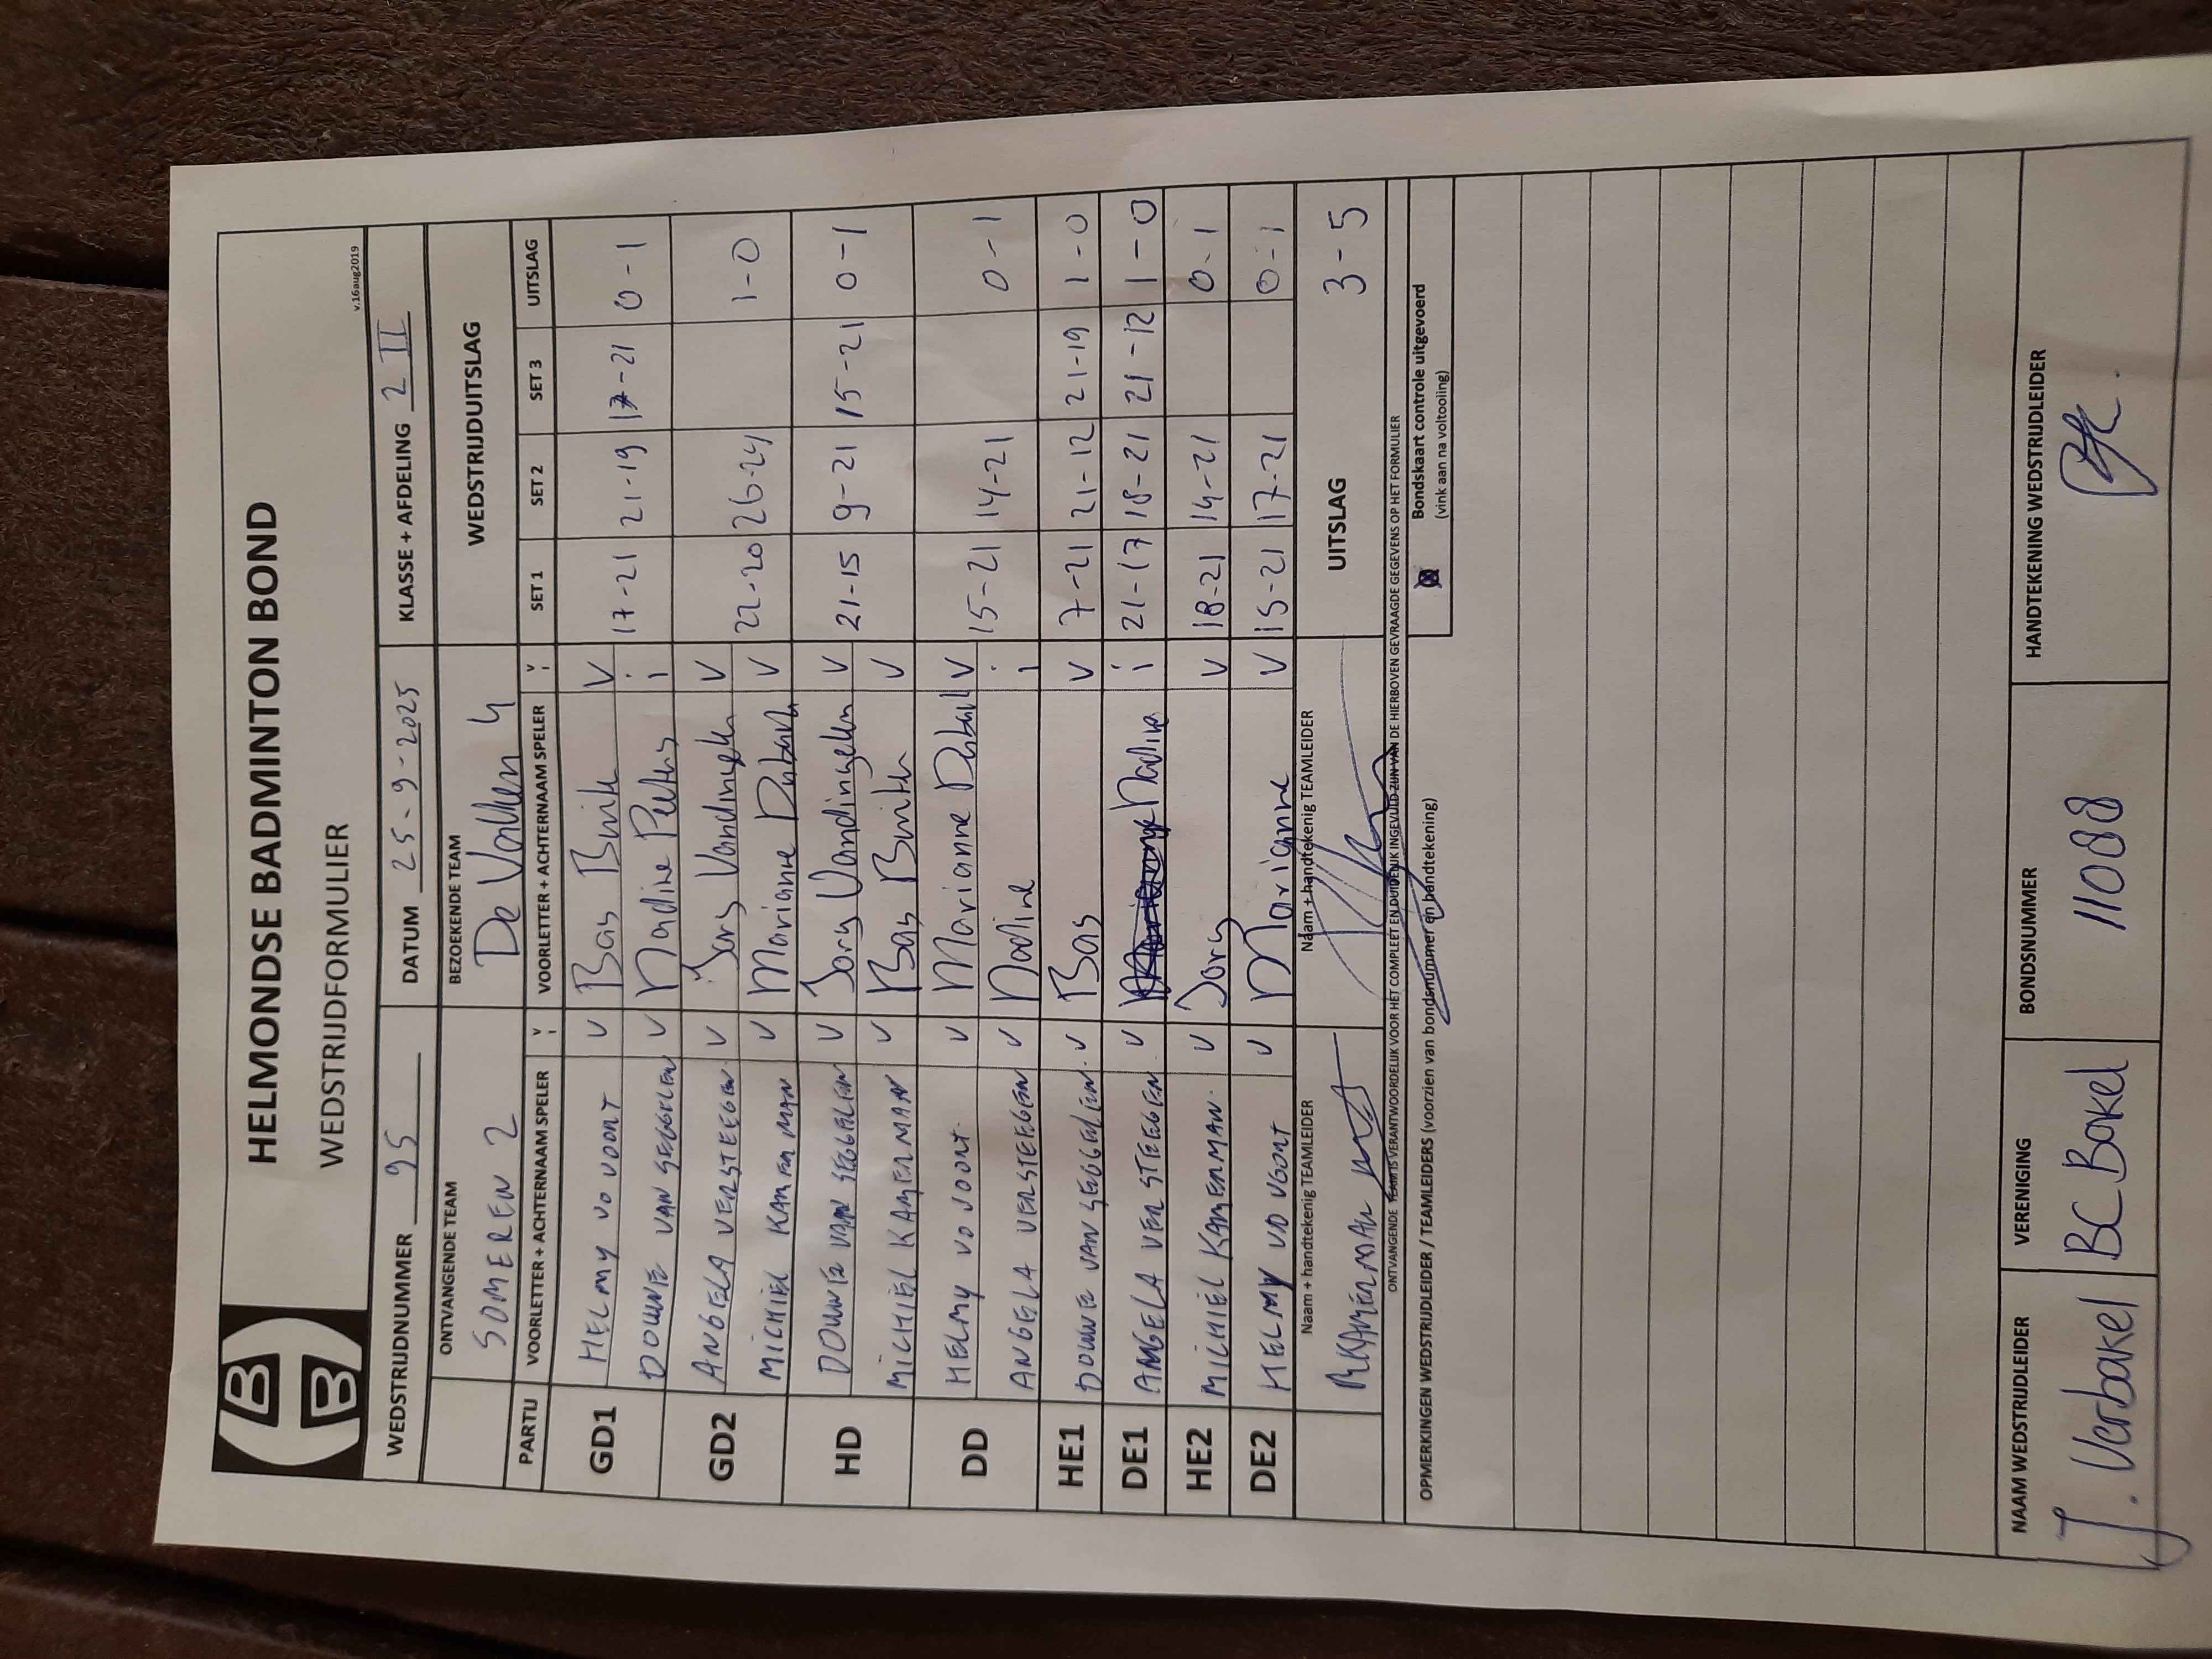 HELMONDSE BADMINTON BOND
WEDSTRIJDFORMULIER
v.16aug2019
WEDSTRIJDNUMMER 95 DATUM 25-9-2025 KLASSE + AFDELING 2 II
ONTVANGENDE TEAM BEZOEKENDE TEAM WEDSTRIJDUITSLAG
SOMEREN 2 De Valken 4
PARTIJ VOORLETTER + ACHTERNAAM SPELER VOORLETTER + ACHTERNAAM SPELER SET 1 SET 2 SET 3 UITSLAG
GD1 HELMY VD VOORT V Bas V
DOUWE VAN SEGGELEN V Nadine Peeters i 17-21 21-19 17-21 0-1
GD2 ANGELA VERSTEEGEN V Jory V
MICHIEL KAMERMAN V Marianne V 22-20 26-24 1-0
HD DOUWE VAN SEGGELEN V Jory V 21-15 9-21 15-21 0-1
MICHIEL KAMERMAN V Bas V
DD HELMY VD VOORT V Marianne V 15-21 14-21 0-1
ANGELA VERSTEEGEN V Nadine i
HE1 DOUWE VAN SEGGELEN V Bas V 7-21 21-12 21-19 1-0
DE1 ANGELA VERSTEEGEN V Nadine i 21-17 18-21 21-12 1-0
HE2 MICHIEL KAMERMAN V Jory V 18-21 14-21 0-1
DE2 HELMY VD VOORT V Marianne V 15-21 17-21 0-1
Naam + handtekenig TEAMLEIDER Naam + handtekenig TEAMLEIDER UITSLAG 3-5
M KAMERMAN
ONTVANGENDE TEAM IS VERANTWOORDELIJK VOOR HET COMPLEET EN DUIDELIJK INGEVULD ZIJN VAN DE HIERBOVEN GEVRAAGDE GEGEVENS OP HET FORMULIER
OPMERKINGEN WEDSTRIJDLEIDER / TEAMLEIDERS (voorzien van bondsnummer en handtekening) Bondskaart controle uitgevoerd
(vink aan na voltooiing)
NAAM WEDSTRIJDLEIDER VERENIGING BONDSNUMMER HANDTEKENING WEDSTRIJDLEIDER
J. Verbakel BC Bakel 11088